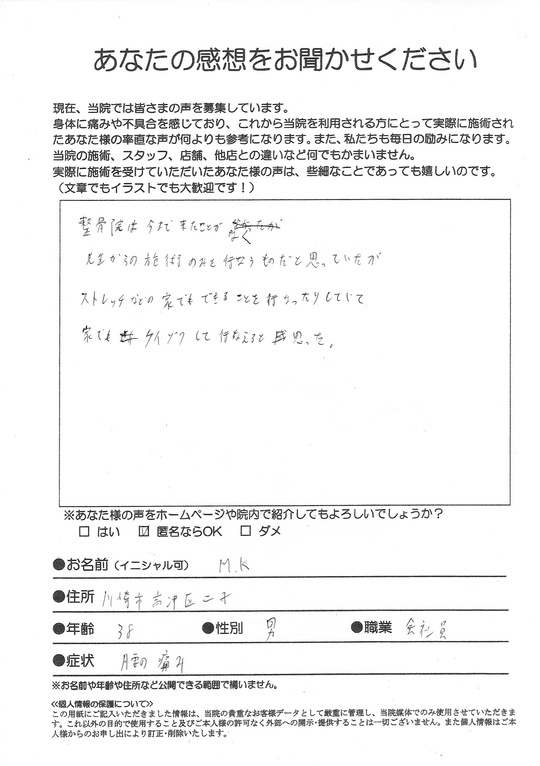 あなたの感想をお聞かせください
現在、当院では皆さまの声を募集しています。
身体に痛みや不具合を感じており、これから当院を利用される方にとって実際に施術され
たあなた様の率直な声が何よりも参考になります。また、私たちも毎日の励みになります。
当院の施術、スタッフ、店舗、他店との違いなど何でもかまいません。
実際に施術を受けていただいたあなた様の声は、些細なことであっても嬉しいのです。
（文章でもイラストでも大歓迎です！）
整骨院は今まで来たことが
なく
先生からの施術のみを行なうものだと思っていたが
ストレッチなどの家でもできることを行なったりしていて
家でも ケイゾクして行なえると思った。
※あなた様の声をホームページや院内で紹介してもよろしいでしょうか？
□ はい ☑ 匿名ならOK □ ダメ
●お名前（イニシャル可） M.K
●住所 川崎市高津区二子
●年齢 38 ●性別 男 ●職業 会社員
●症状 腰の痛み
※お名前や年齢や住所など公開できる範囲で構いません。
≪個人情報の保護について≫
この用紙にご記入いただきました情報は、当院の貴重なお客様データとして厳重に管理し、当院媒体でのみ使用させていただきま
す。これ以外の目的で使用すること及びご本人様の許可なく外部への開示・提供することは一切ございません。また個人情報はご本
人様からのお申し出により訂正・削除いたします。